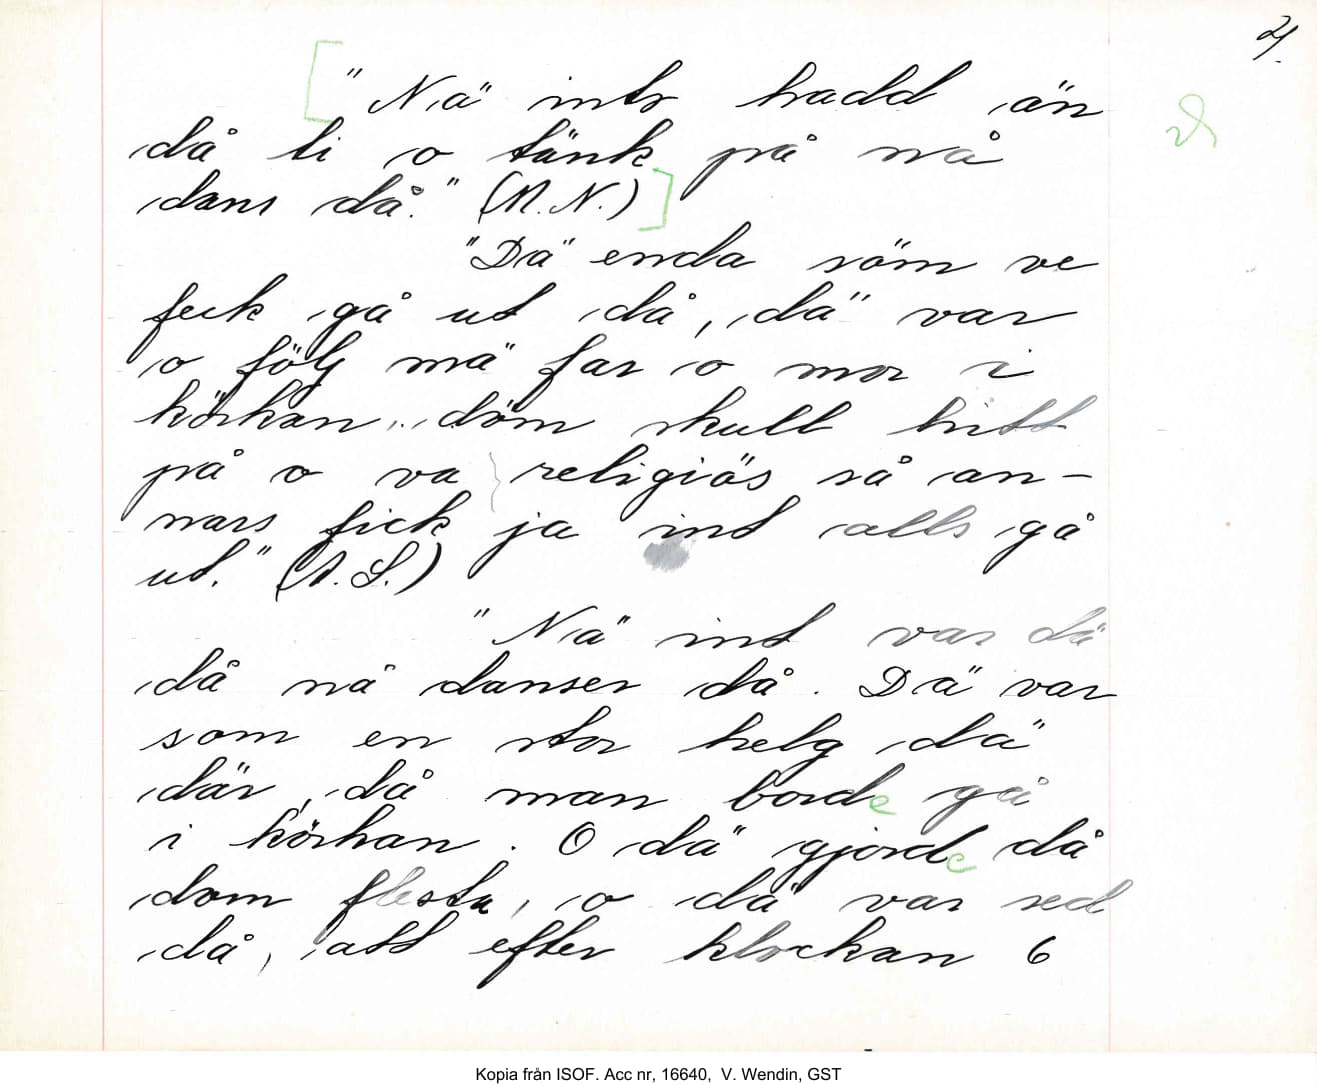 21.
"Nä" inte hadd än
då ti o tänk på nå
dans då." (M.N.)
"Dä" enda söm ve
feck gå ut då, dä" var
o följ mä" far o mor i
körkan, döm skull hitt
på o va religiös så an-
nars fick ja int alls gå
ut." (A. L.)
"Nä" int var dä
då nå danser då. Dä" var
som en stor helg dä"
där, då man borde gå
i körkan. O dä" gjorde då
dom flesta, o dä var sed
då, att efter klockan 6
Kopia från ISOF. Acc nr, 16640, V. Wendin, GST